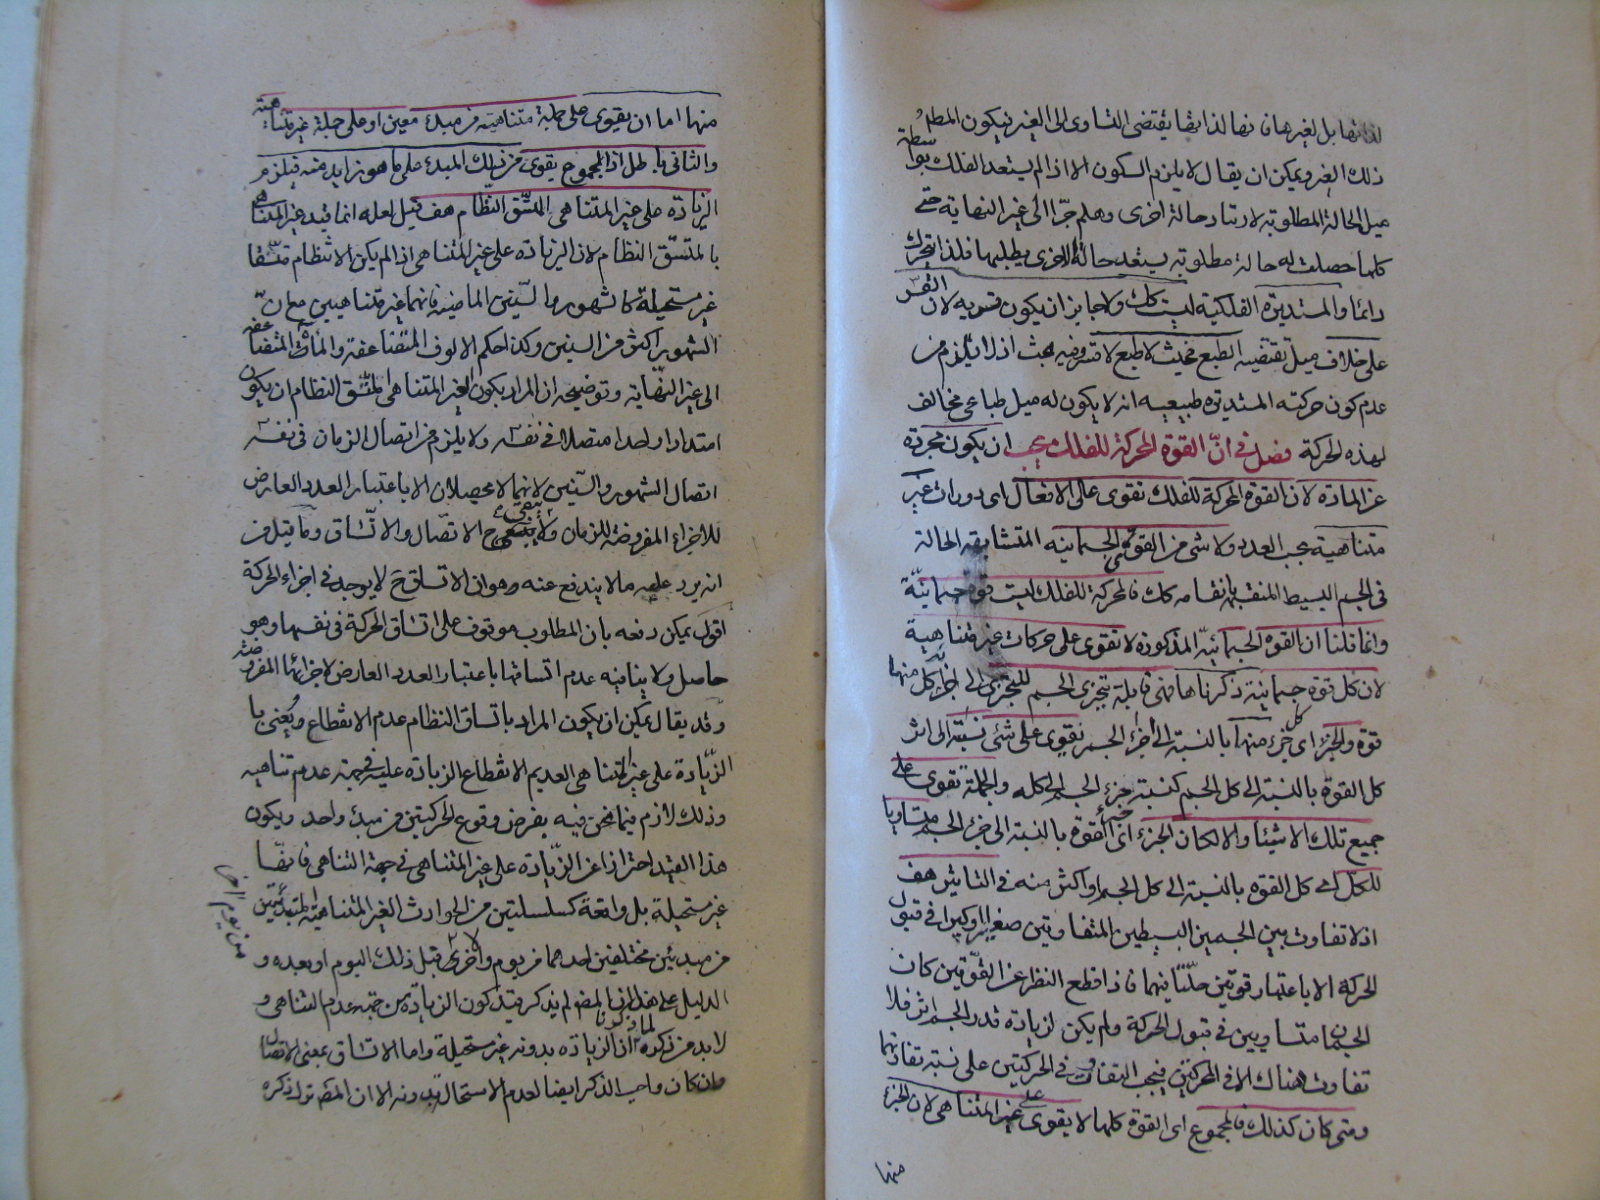 لذاتها بل لغيرها فانها لذاتها يقتضى التساوى الى الغير فيكون المطلوب
ذلك الغير ويمكن ان يقال لا يلزم السكون الا اذا لم يستعد الفلك بواسطة
ميل الحالة المطلوبة لارتياد حالة اخرى وهلم جرّا الى غير النهاية حتى
كلما حصلت له حالة مطلوبة يستعد حالة اخرى يطلبها فلذا يتحرك
دائما والمستديرة الفلكية ليست كك ولا جايز ان يكون قسرية لان القسر
على خلاف ميل يقتضيه الطبع فحيث لا طبع لا قسر وفيه بحث اذ لا يلزم من
عدم كون حركته المستديرة طبيعية انه لا يكون له ميل طباعى مخالف
لهذه الحركة فصل فى انّ القوة المحركة للفلك يجب ان يكون مجردة
عن المادة لان القوة المحركة للفلك تقوى على الافعال اى دورات غير
متناهية بحسب العدد ولا شئ من القوة الجسمانية المتشابهة الحالة
فى الجسم البسيط المنقسمة بانقسامه كك فالمحركة للفلك ليست قوة جسمانيّة
وانما قلنا ان القوة الجسمانيّة المذكورة لا تقوى على حركات غير متناهية
لان كل قوة جسمانية ذكرناها فهى قابلة بتجزى الجسم للتجزى الى اجزاء كل منها
قوة والجزء اى كل جزء منها بالنسبة الى اجزاء الجسم تقوى على شئ نسبته الى اثر
كل القوة بالنسبة الى كل الجسم كنسبة جزء الجسم الى كله والجملة تقوى على
جميع تلك الاشياء والا لكان الجزء اى جزء القوة بالنسبة الى جزء الجسم مساويا
للكل اى كل القوة بالنسبة الى كل الجسم او اكثر منه فى التاثير هف
اذ لا تفاوت بين الجسمين البسيطين المتفاوتين صغيرا وكبيرا فى قبول
الحركة الا باعتبار قوتين حلّتا فيهما فاذا قطع النظر عن القوّتين كان
الجسمان متساويين فى قبول الحركة ولم يكن لزيادة قدر الجسم اثر فلا
تفاوت هناك الا فى المحركتين فيجب التفاوت فى الحركتين على نسبة تفاوتهما
ومتى كان كذلك فالمجموع اى القوة كلها لا يقوى على غير المتناهى لان الجزء
منها
منها اما ان يقوى على جملة متناهية من مبدء معين او على جملة غير متناهية
والثانى باطل اذ المجموع يقوى من ذلك المبدء على ما هو زايد منه فيلزم
الزيادة على غير المتناهى المتّسق النظام هف قيل لعله انما قيد غير المتناهى
بالمتسّق النظام لان الزيادة على غير المتناهى اذا لم يكن الانتظام متسّقا
غير مستحيلة كالشهور والسّنين الماضية فانهما غير متناهيين مع انّ
الشهور اكثر من السنين وكذا حكم الالوف المتضاعفة والمأت المتضاعفة
الى غير النّهاية وتوضيحه ان المراد بكون الغير المتناهى المتّسق النظام ان يكون
امتدادا واحدا متصلا فى نفسه ولا يلزم من اتصال الزمان فى نفسه
اتصال الشهور والسّنين لانهما لا يحصلان الا باعتبار العدد العارض
للاجزاء المفروضة للزمان ولا يبقى ح الاتّصال والاتّساق وما قيل من
انه يرد عليه ما لا يندفع عنه وهو ان الاتساق ح لا يوجد فى اجزاء الحركة
اقول يمكن دفعه بان المطلوب موقوف على اتساق الحركة فى نفسها وهو
حاصل ولا ينافيه عدم اتساقها باعتبار العدد العارض لاجزائها المفروضة
وقد يقال يمكن ان يكون المراد باتساق النظام عدم الانقطاع ويُعنى با
الزّيادة على غير المتناهى العديم الانقطاع الزيادة عليه فى جهة عدم تناهيه
وذلك لازم فيما نحن فيه بفرض وقوع الحركتين من مبدء واحد ويكون
هذا القيد احترازا عن الزّيادة على غير المتناهى فى جهة التناهى فانها
غير مستحيلة بل واقعة كسلسلتين من الحوادث الغير المتناهية المبتدئتين
من مبدئين مختلفين احدهما من يوم والاخرى قبل ذلك اليوم او بعده و
الدليل على هذا المص لم يذكر قيد كون الزيادة من جهة عدم التناهى و
لا بد من ذكره لما ان الزيادة بدونه غير مستحيلة واما الاتساق بمعنى الاتصال
وان كان واجب الذكر ايضا لعدم الاستحالة بدونه الا ان المص ترك ذكره